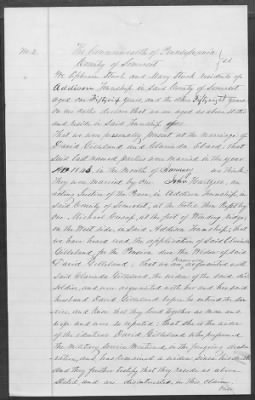 The Commonwealth of Pennsylvania
County of Somerset } SS
We Ephraim and Mary residents of
Addison Township in Said County of Somerset
aged one Fifty six years and the other Fifty eight years
on our oaths declare that we are aged as above stated
and reside in Said Township
That we were personally present at the marriage of
David Gilleland and Clarinda
Said last named parties were married in the year
in the month of as we think
They were married by One John
Justice of the Peace in Addison Township, in
Said County of Somerset, at the then Kept by
One Michael at the foot of Winding Ridge,
on the West side, in Said Addison Township; that
we have heard read the application of Said Clarinda
Gilleland, for the Pension due the Widow of Said
David Gilleland; that we are acquainted with
Said Clarinda Gilleland, the widow of the Said
Soldier, and were acquainted with her and her said
husband David Gilleland before he entered the Ser-
vice, and know that they lived together as man and
wife and were so reputed; that she is the widow
of the identical David Gilleland who performed
the Military service Mentioned in the foregoing decla-
ration, and has remained a widow Since his death
And they further testify that they reside as above
Stated and are disinterested in this claim.